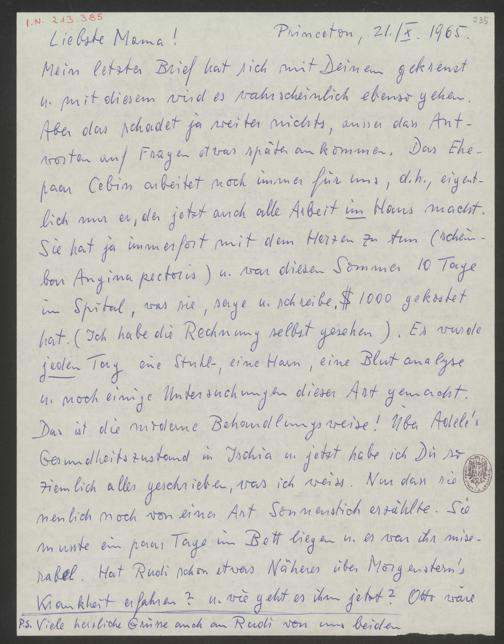 I.N. 213.385
235
Liebste Mama! Princeton, 21./IX. 1965.
Mein letzter Brief hat sich mit Deinem gekreuzt
u. mit diesem wird es wahrscheinlich ebenso gehen.
Aber das schadet ja weiter nichts, ausser dass Ant-
worten auf Fragen etwas später ankommen. Das Ehe-
paar Cebin arbeitet noch immer für uns, d.h., eigent-
lich nur er, der jetzt auch alle Arbeit im Haus macht.
Sie hat ja immerfort mit dem Herzen zu tun (schein-
bar Angina pectoris) u. war diesen Sommer 10 Tage
im Spital, was sie, sage u. schreibe, $ 1000 gekostet
hat. (Ich habe die Rechnung selbst gesehen). Es wurde
jeden Tag eine Stuhl-, eine Harn, eine Blutanalyse
u. noch einige Untersuchungen dieser Art gemacht.
Das ist die moderne Behandlungsweise! Über Adele's
Gesundheitszustand in Ischia u. jetzt habe ich Dir so
ziemlich alles geschrieben, was ich weiss. Nur dass sie
nemlich noch von einer Art Sonnenstich erzählte. Sie
musste ein paar Tage im Bett liegen u. es war ihr mise-
rabel. Hat Rudi schon etwas Näheres über Morgenstern's
Krankheit erfahren? u. wie geht es ihm jetzt? Otto wäre
P.S. Viele herzliche Grüsse auch an Rudi von uns beiden